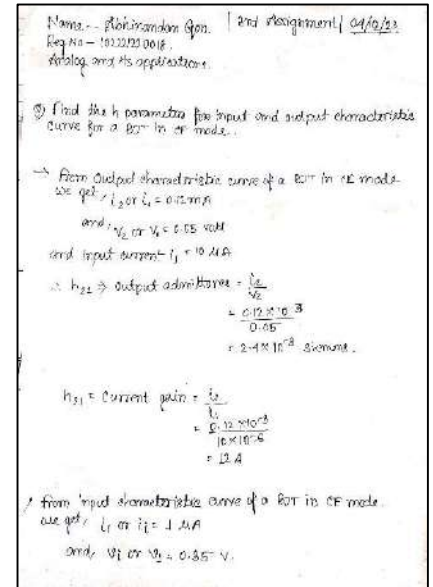 Name -- Abhinandan Gon. | 2nd Assignment | 04/12/23
Reg No -
Analog and its applications.
Q) Find the h parameters for input and output characteristic
curve for a BJT in CE mode.
→ From Output characteristic curve of a BJT in CE mode
we get, i₂ or i₁ = 0.12 mA
and, v₂ or v₁ = 0.05 volt
and input current i₁ = 10 μA
∴ h₂₂ ⇒ output admittance = i₂/v₂
= 0.12 × 10⁻³ / 0.05
= 2.4 × 10⁻³ siemens.
h₂₁ = Current gain = i₂/i₁
= 0.12 × 10⁻³ / 10 × 10⁻⁶
= 12 A
from input characteristic curve of a BJT in CE mode.
we get, i₁ or iᵢ = 1 μA
and, vᵢ or v₁ = 0.35 V.